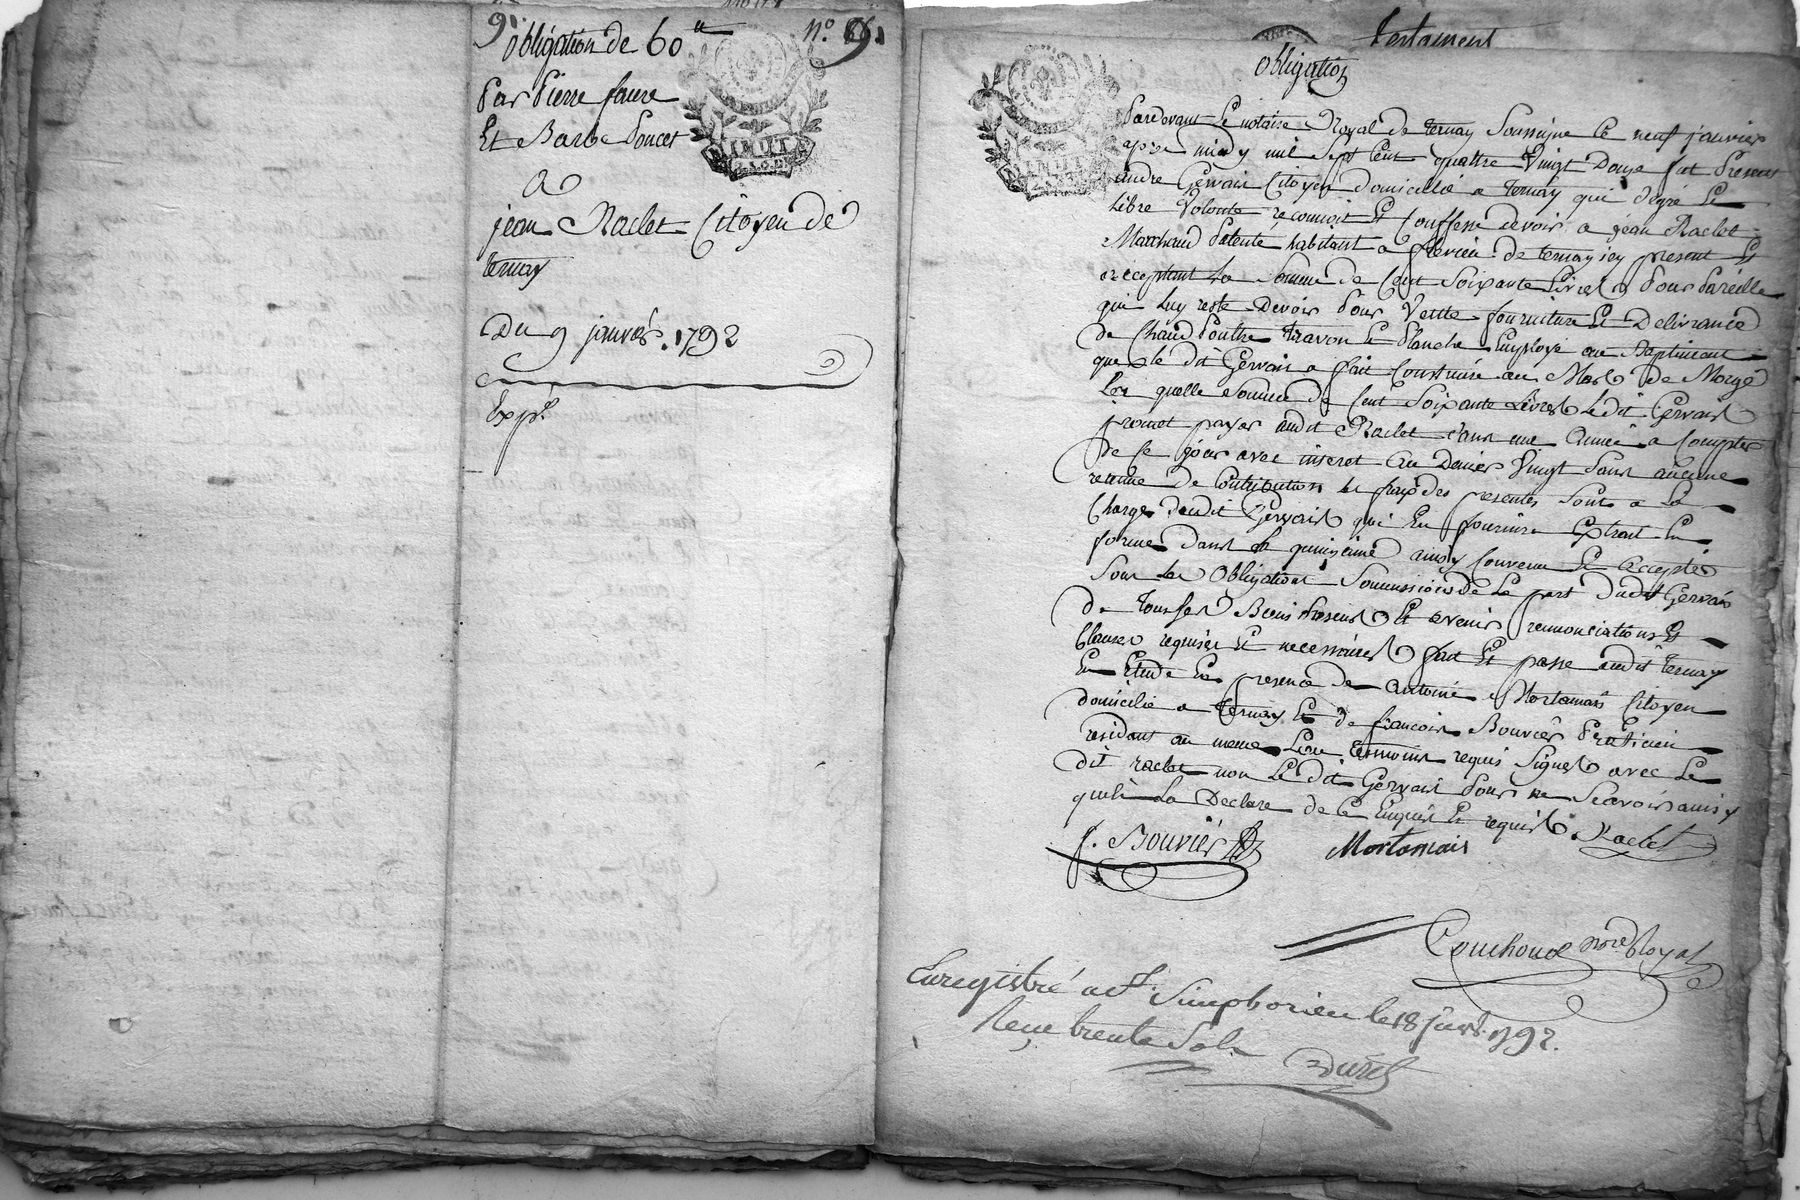 9.
obligation de 60 ₶
Par Pierre faure
Et Barbe Poncet
a
jean Raclet Citoyen de
ternay
Du 9 janvier. 1792
Exp.é
n.º
MINUTE
testament
obligation
Pardevant Le notaire Royal de ternay Soussigné Ce neuf janvier
apres midy mil Sept Cent quattre Vingt Douze fut Present
andre Gervais Citoyen Domicilié a ternay qui degré Et
Libre Volonté reconnoit Et Confesse devoir a jean Raclet
Marchand Patenté habitant a flevieu de ternay icy present Et
acceptant La Somme de Cent Soixante Livres Pour Pareille
qui Luy reste Devoir Pour Vente fourniture Et Delivrance
de Chaud Poutre travon Et Planche Employé au Baptiment
que le dit Gervais a fait Construire au Mas de Morge
La quelle Somme De Cent Soixante Livres Ledit Gervais
promet payer audit Raclet dans une Année a Compter
De Ce jour avec interet Au Denier Vingt Sans aucune
retenue De Contribution les frais des presentes Sont a La
Charge dudit Gervais qui En fournira Extrait En
forme Dans La quinzaine ainsy Convenu Et accepté
Sous Les Obligations Soumissions de La part Dudit Gervais
De tous Ses Biens Presents Et avenir renonciations Et
Clauses requises Et necessaires fait Et passé audit ternay
En Etude En presence de antoine Mortamais Citoyen
domicilié a ternay Et de françois Bouvier Praticien
residant au meme Lieu temoins requis Signés avec Le
dit raclet non Le dit Gervais Pour ne Scavoir ainsy
quil La Declaré de Ce Enquis Et requis Raclet
f. Bouvier
Mortamais
Couchoud nore Royal
Enregistré a St. Simphorien le 18 janv. 1792.
Reçu trente Sols
Duret